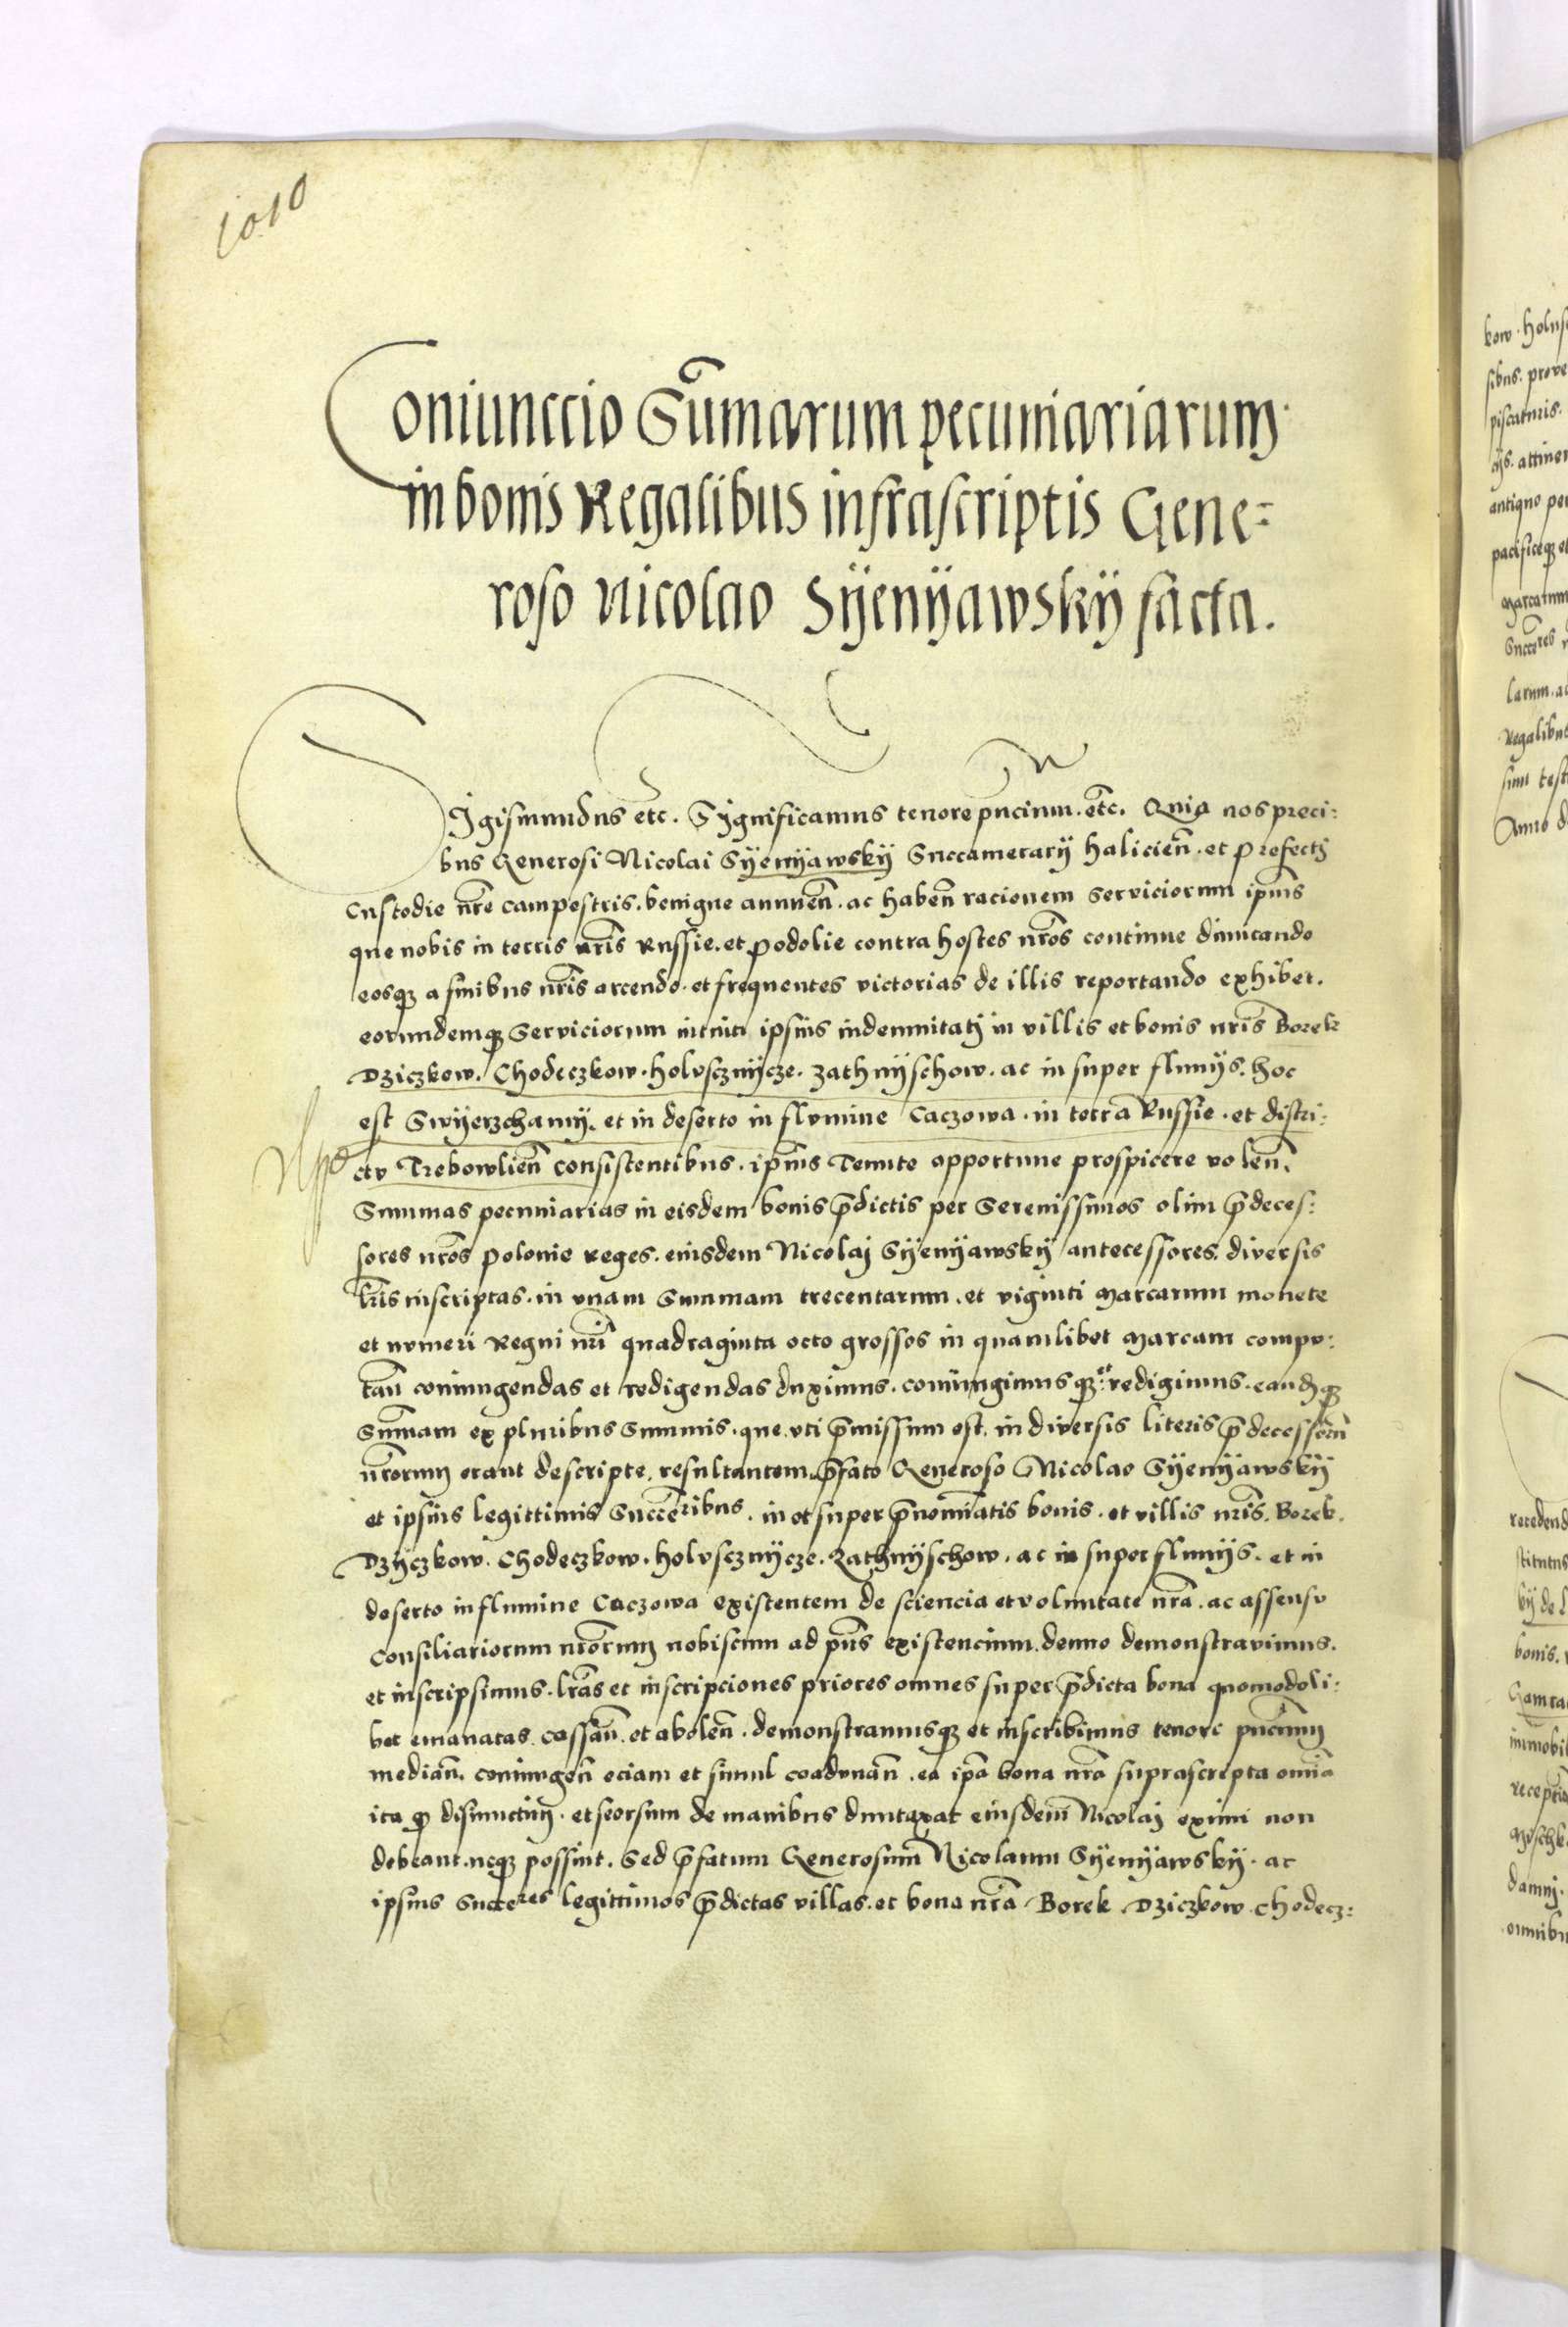 1010
Coniunccio Sum̃arum pecuniariarum
in bonis Regalibus infrascriptis Gene=
roso Nicolao Syenyawsky facta.
Sigismundus etc. Significamus tenore pñcium. etc. Quia nos preci:
bus Generosi Nicolai Syenyawsky Succamerarij halicieñ. et prefecti
Custodie nr̃e campestris. benigne annueñ. ac habeñ racionem serviciorum ip̃ius
que nobis in terris nr̃is Russie. et Podolie contra hostes nr̃os continue dimicando
eosq₃ a finibus nr̃is arcendo. et frequentes victorias de illis reportando exhibet.
eorumdemq₃ serviciorum intuitu ipsius indemnitati in villis et bonis nr̃is Borek
Dziczkow. Chodeczkow. holvscznycze. zathnyschow. ac in super fluuijs. hoc
est Swyerzchamy. et in deserto in flvmine Caczowa. in terra Russie. et distri:
ctv Trebowlieñ consistentibus. ip̃ius Tenute opportune prospicere voleñ.
Summas pecuniarias in eisdem bonis p̃dictis per Serenissimos olim p̃deces:
sores nr̃os Polonie Reges. eiusdem Nicolaj Syenyawsky antecessores. diversis
lr̃is inscriptas. in vnam Summam trecentarum. et viginti marcarum monete
et nvmeri Regni nr̃i quadraginta octo grossos in quamlibet marcam compv:
tañ coniungendas et redigendas duximus. coniungimusq₃ et redigimus. eandẽq₃
Sum̃am ex pluribus Summis. que. vti p̃missum est. in diversis literis p̃decessorũ
nr̃orum erant descripte. resultantem. p̃fato Generoso Nicolao Syenyawsky
et ipsius legittimis Succẽribus. in et super p̃nominatis bonis. et villis nr̃is. Borek.
Dzyczkow. Chodeczkow. holvscznycze. Zathnyschow. ac in super fluuijs. et in
deserto in flumine Caczowa existentem de sciencia et voluntate nr̃a. ac assensv
Consiliariorum nr̃orum nobiscum ad p̃ns existencium. denuo demonstravimus.
et inscripsimus. lr̃as et inscripciones priores omnes super p̃dicta bona quomodoli:
bet emanatas. cassañ. et aboleñ. demonstramusq₃ et inscribimus tenore pñcium
mediañ. coniungeñ eciam et simul coadvnañ. ea ip̃a bona nr̃a suprascripta omnia
ita q̃ disiunctim. et seorsum de manibus duntaxat eiusdem Nicolaj eximi non
debeant. neq₃ possint. Sed p̃fatum Generosum Nicolaum Syenyawsky. ac
ipsius Succẽres legittimos p̃dictas villas. et bona nr̃a. Borek. Dziczkow. Chodecz: